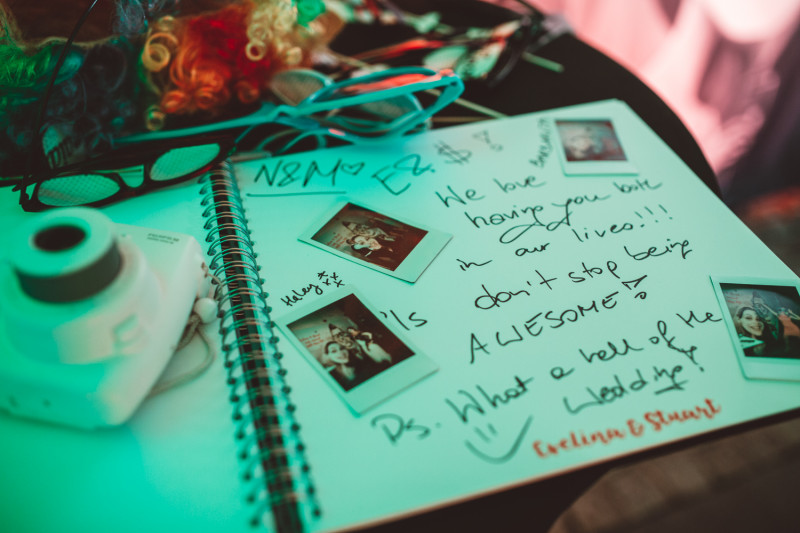 N&M ♡ E&
We love
having you both
in our lives!!!
don't stop being
AWESOME!
Haley xxx
Ps. What a hell of the
wedding!
Evelina & Stuart